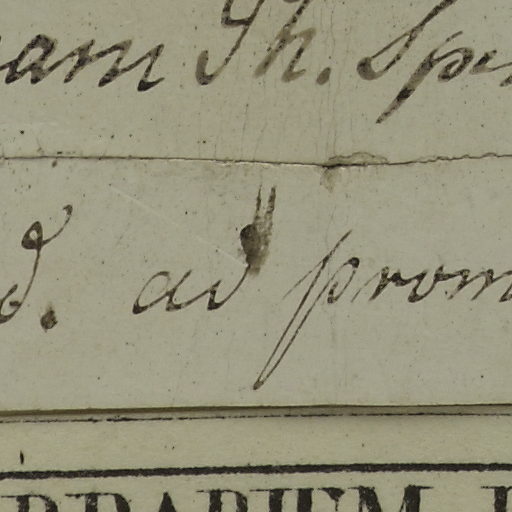 am Th. Spr
d. ad prom
ERBARIUM